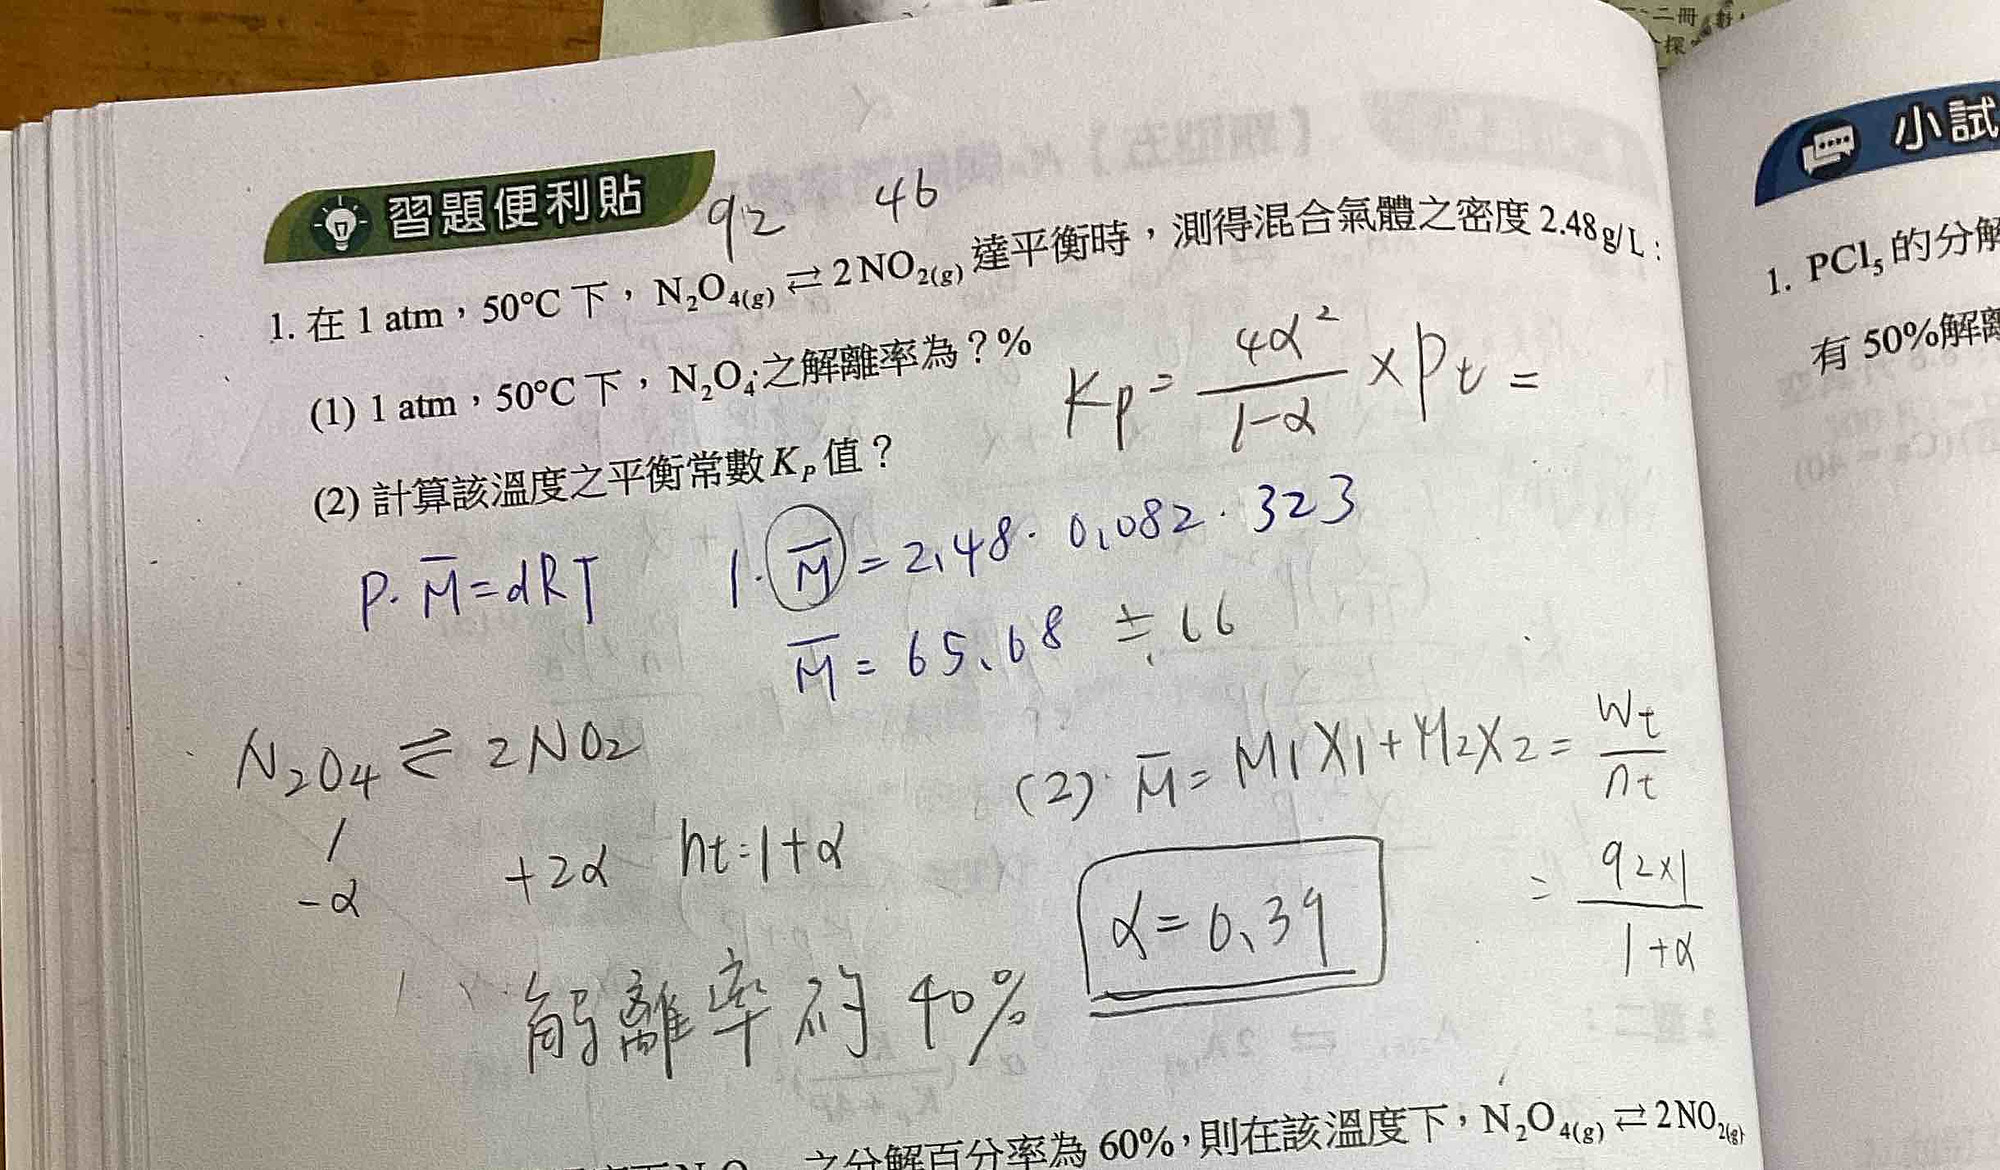 二冊
習題便利貼
92 46
1. 在 1 atm，50°C 下，N₂O₄(g) ⇄ 2NO₂(g) 達平衡時，測得混合氣體之密度 2.48 g/L：
(1) 1 atm，50°C 下，N₂O₄之解離率為？%
Kp = 4α² / 1-α × Pt =
(2) 計算該溫度之平衡常數 K_P 值？
P·M̄=dRT 1·M̄=2.48·0.082·323
M̄=65.68 ≒ 66
N₂O₄ ⇌ 2NO₂
1
-α +2α nt=1+α
(2) M̄=M1X1+M2X2= Wt / nt
= 92×1 / 1+α
α=0.39
解離率約 40%
之分解百分率為 60%，則在該溫度下，N₂O₄(g) ⇄ 2NO₂(g)
小試
1. PCl₅ 的分解
有 50%解離